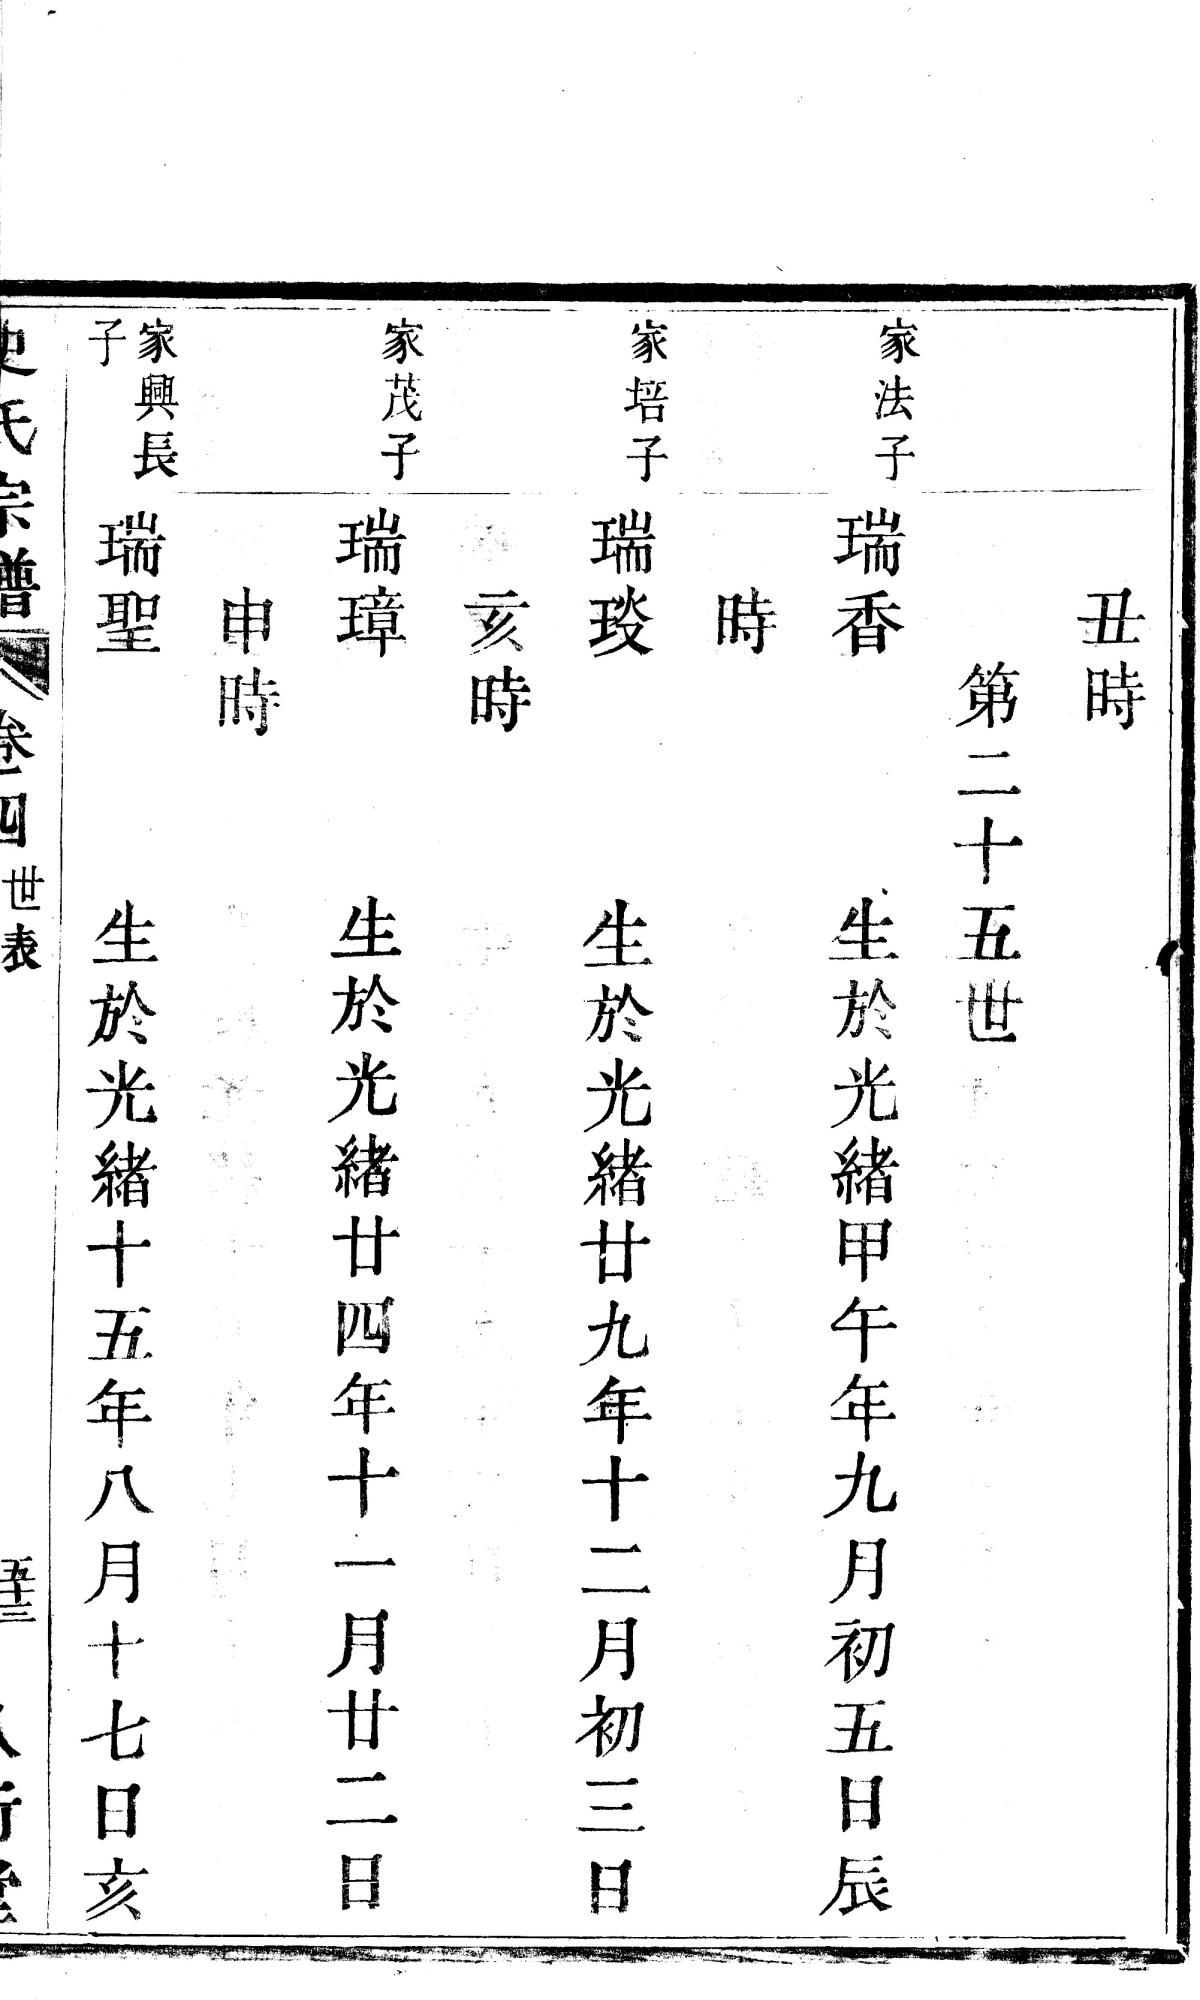 丑時
第二十五世
家法子
瑞香 生於光緒甲午年九月初五日辰
時
家培子
瑞琰 生於光緒廿九年十二月初三日
亥時
家茂子
瑞璋 生於光緒廿四年十一月廿二日
申時
家興長
子
瑞聖 生於光緒十五年八月十七日亥
史氏宗譜 卷四 世表
八行堂